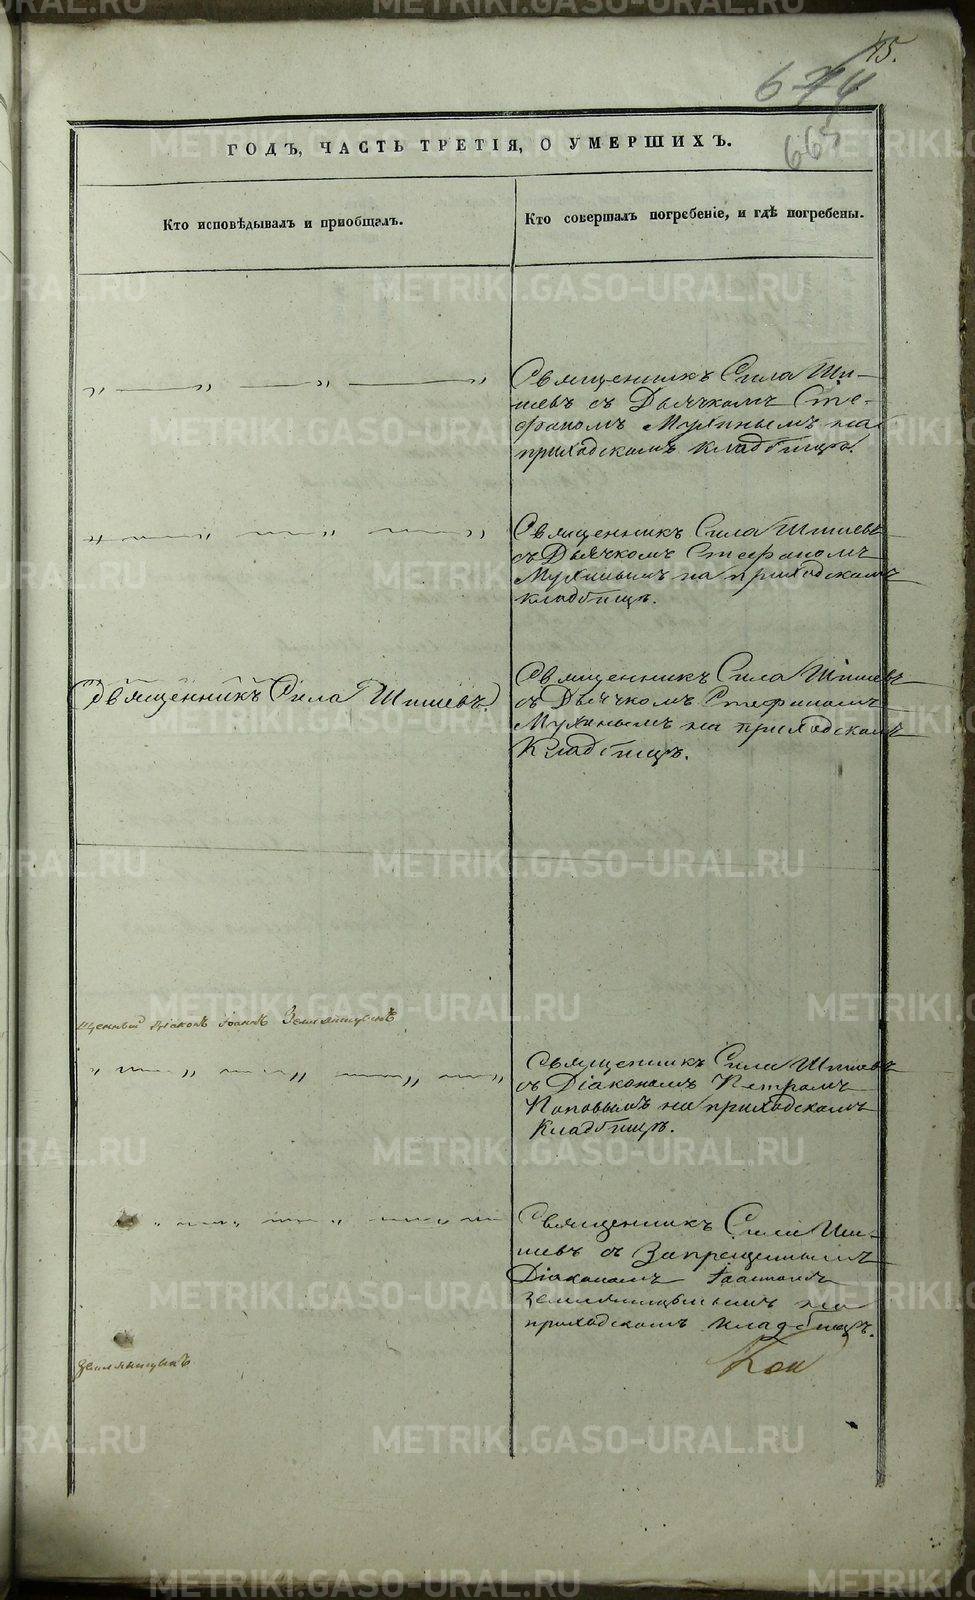 45.
674
665
ГОДЪ, ЧАСТЬ ТРЕТІЯ, О УМЕРШИХЪ.
Кто исповѣдывалъ и пріобщалъ.
Кто совершалъ погребеніе, и гдѣ погребены.
Священникъ Сила Ши-
шевъ съ Дьячкомъ Сте-
фаномъ Мухинымъ на
приходскомъ кладбищѣ.
Священникъ Сила Шишевъ
съ Дьячкомъ Стефаномъ
Мухинымъ на приходскомъ
кладбищѣ.
Священникъ Сила Шишевъ.
Священникъ Сила Шишевъ
съ Дьячкомъ Стефаномъ
Мухинымъ на приходскомъ
Кладбищѣ.
щенный Діаконъ Іоаннъ Земляницынъ
Священникъ Сила Шишевъ
съ Діакономъ Петромъ
Поповымъ на приходскомъ
Кладбищѣ.
Священникъ Сила Ши-
шевъ съ Запрещеннымъ
Діакономъ Іоанномъ
Земляницынымъ на
приходскомъ кладбищѣ.
Земляницынъ
Кон
METRIKI.GASO-URAL.RU